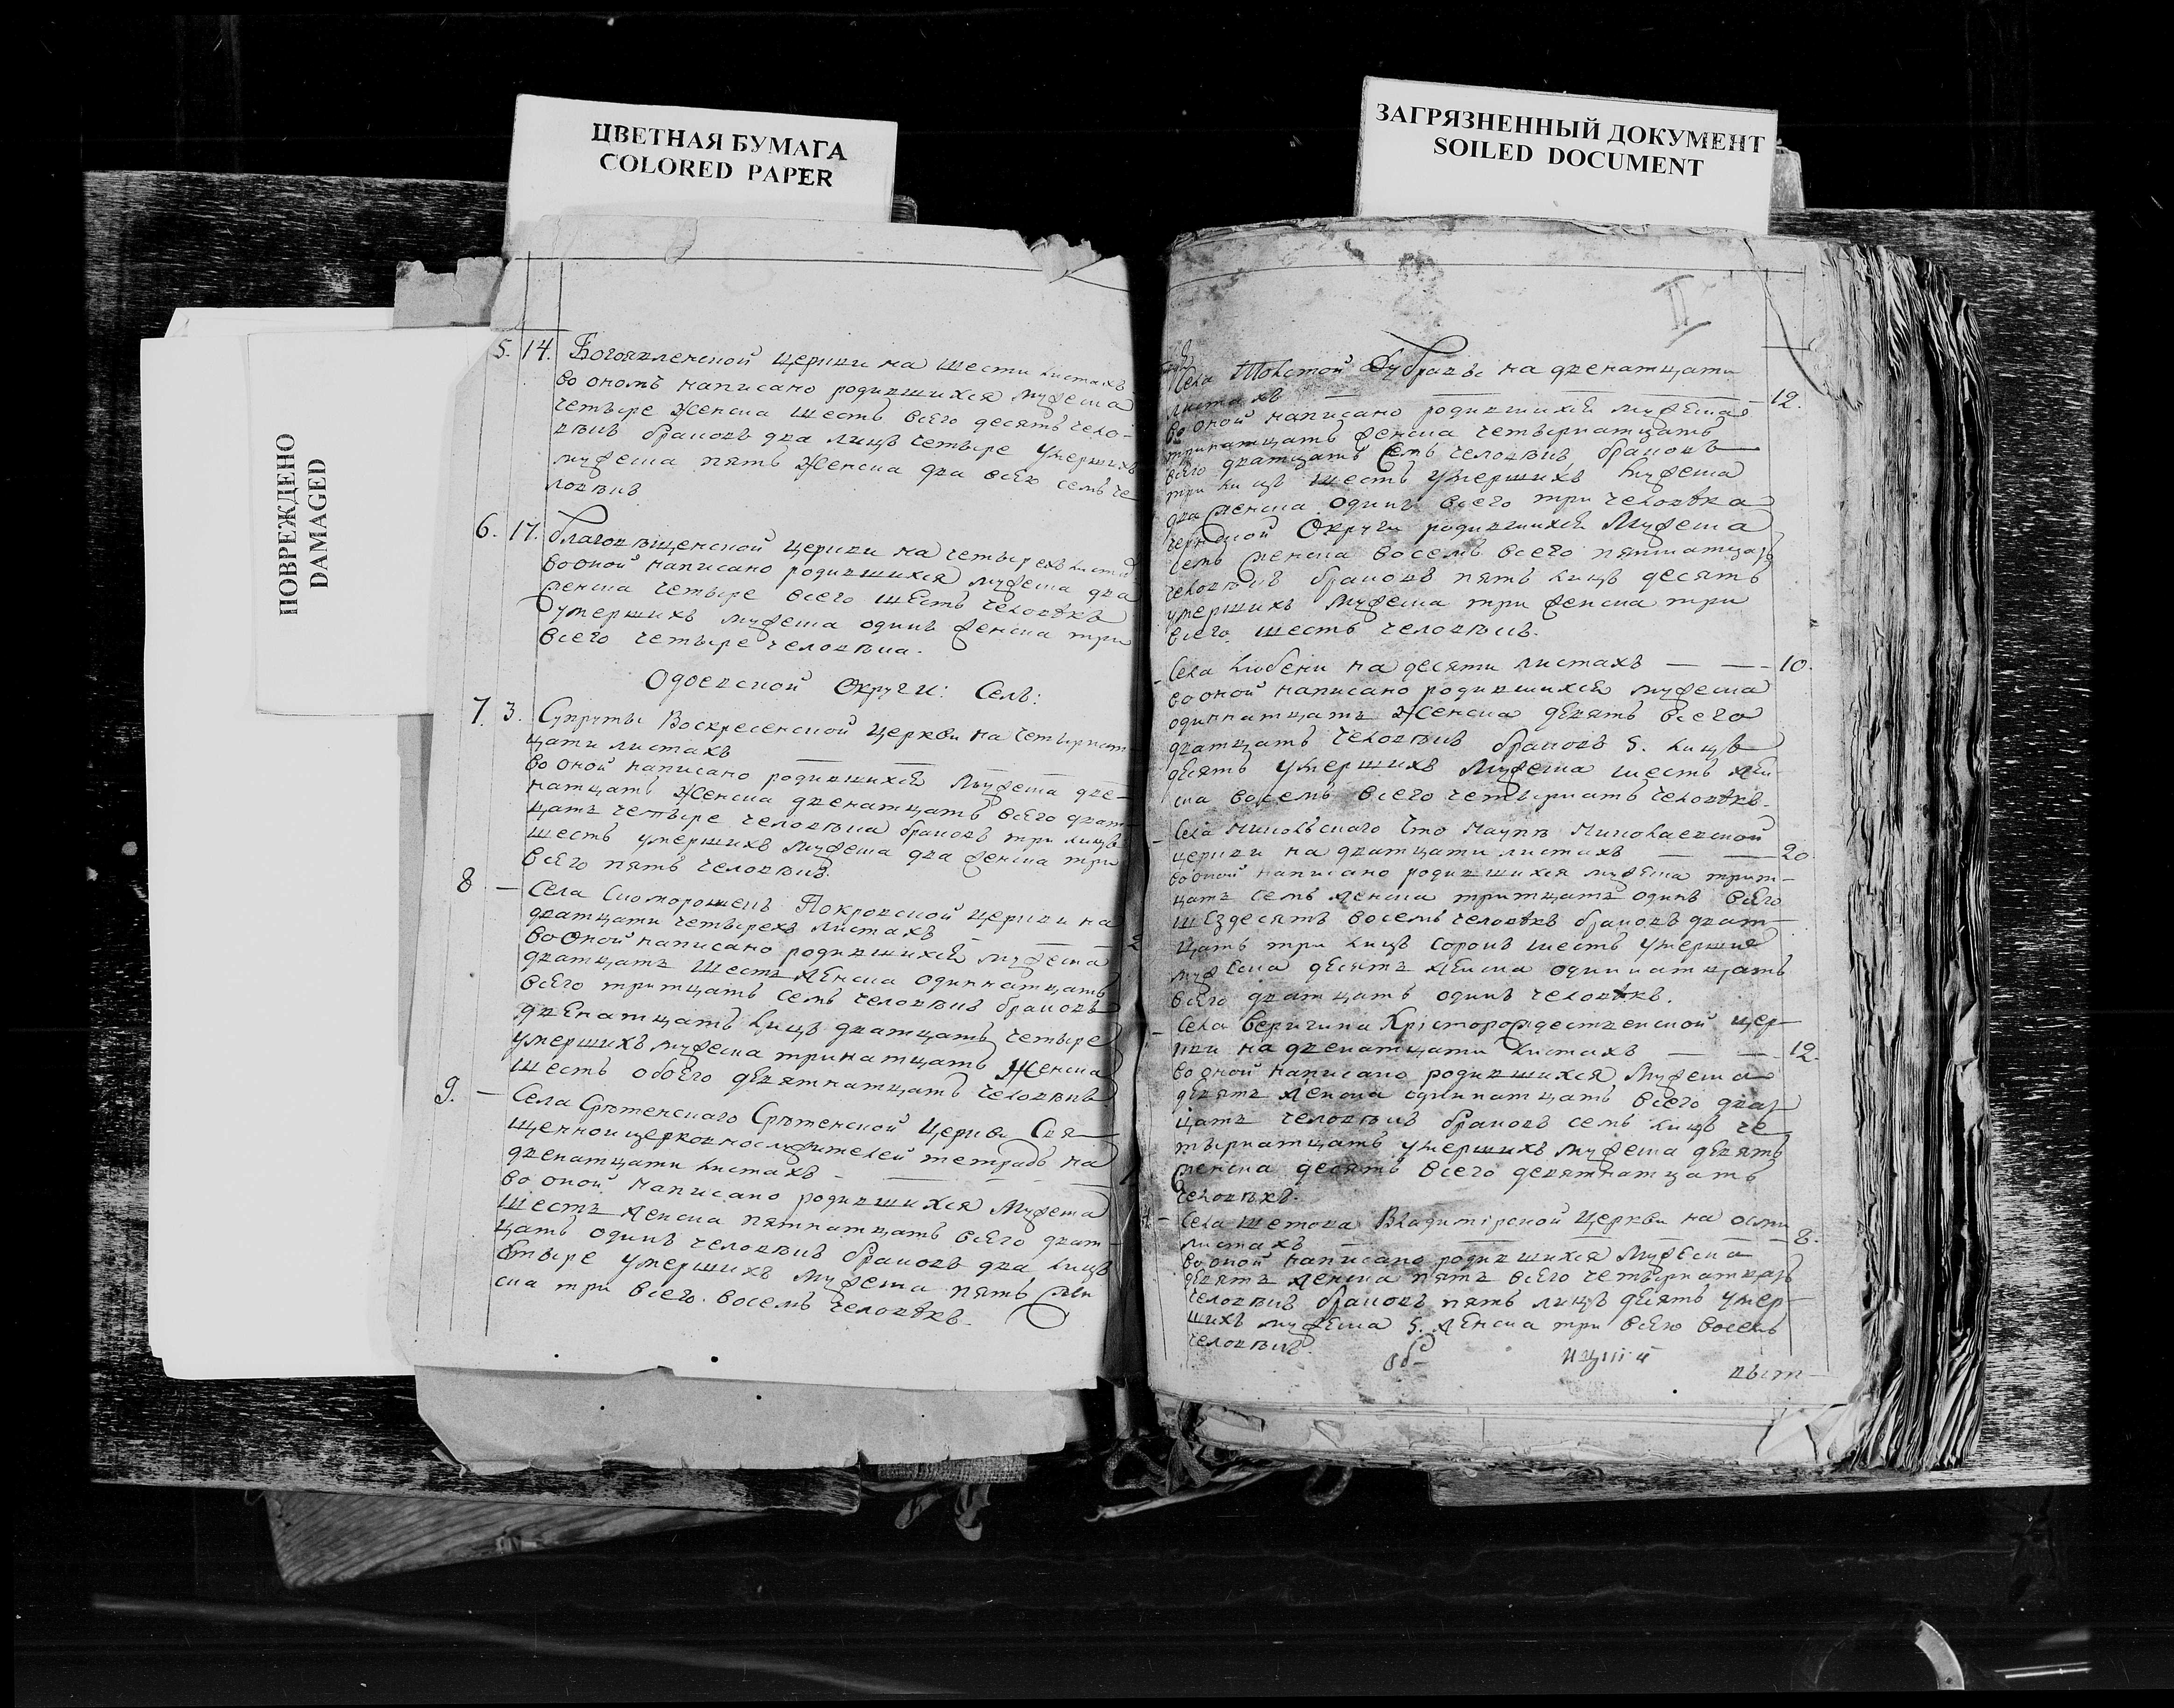 ЦВЕТНАЯ БУМАГА
COLORED PAPER
ЗАГРЯЗНЕННЫЙ ДОКУМЕНТ
SOILED DOCUMENT
ПОВРЕЖДЕНО
DAMAGED
5. 14. Богоявленской церкви на шести листахъ
во ономъ написано родившихся мужеска
четыре женска шесть всего десять чело-
вѣкъ браковъ два лицъ четыре умершихъ
мужеска пять женска два всего семь че
ловѣкъ
6. 17. благовѣщенской церкви на четырехъ листа
во оной написано родившихся мужеска два
женска четыре всего шесть человѣкъ
умершихъ мужеска одинъ женска три
всего четыре человѣка.
Одоевской Округи: Селъ:
7. 3. Супруты Воскресенской церкви на четырнат
цати листахъ
во оной написано родившихся мужеска две-
натцать женска двенатцать всего дват
цать четыре человѣка браковъ три лицъ
шесть умершихъ мужеска два женска три
всего пять человѣкъ.
8 — Села Скоморошекъ Покровской церкви на
дватцати четырехъ листахъ
во оной написано родившихся мужеска
дватцать шесть женска одиннатцать
всего тритцать семь человѣкъ браковъ
двенатцать лицъ дватцать четыре
умершихъ мужеска тринатцать женска
шесть обоего девятнатцать человѣкъ
9. — Села Срѣтенскаго Срѣтенской Церкви Свя
щенноицерковнослужителей тетрадь на
двенатцати листахъ
во оной написано родившихся Мужеска
шесть женска пятнатцать всего дват
цать одинъ человѣкъ браковъ два лицъ
четыре умершихъ мужеска пять жен
ска три всего восемь человѣкъ.
II
Села Толстой Дубравы на двенатцати
листахъ — 12.
во оной написано родившихся мужеска
тринатцать женска четырнатцать
всего дватцать семь человѣкъ браковъ
три лицъ шесть умершихъ мужеска
два женска одинъ всего три человѣка
Чернской Округи родившихся Мужеска
семь женска восемь всего пятнатцать
человѣкъ браковъ пять лицъ десять
умершихъ мужеска три женска три
всего шесть человѣкъ.
Села Любени на десяти листахъ — — 10.
во оной написано родившихся мужеска
одиннатцать женска девять всего
дватцать человѣкъ браковъ 5. лицъ
десять умершихъ Мужеска шесть жен
ска восемь всего четырнать человѣкъ.
Села Никольскаго что Николаевской
церкви на дватцати листахъ — — 20
во оной написано родившихся мужеска трит-
цать семь женска тритцать одинъ всего
шездесять восемь человѣкъ браковъ дват-
цать три лицъ сорокъ шесть умершие
мужеска десять женска одиннатцать
всего дватцать одинъ человѣкъ.
Села Веригина Христорождественской цер-
кви на двенатцати листахъ — — 12.
во оной написано родившихся Мужеска
девять женска одиннатцать всего дват
цать человѣкъ браковъ семь лицъ че
тырнатцать умершихъ мужеска девять
женска десять всего девятнатцать
человѣкъ.
Села Шетова Владимірской Церкви на осми
листахъ — 8.
во оной написано родившихся Мужеска
девять женска пять всего четырнатцать
человѣкъ браковъ пять лицъ десять умер-
шихъ мужеска 5. женска три всего восемь
человѣкъ.